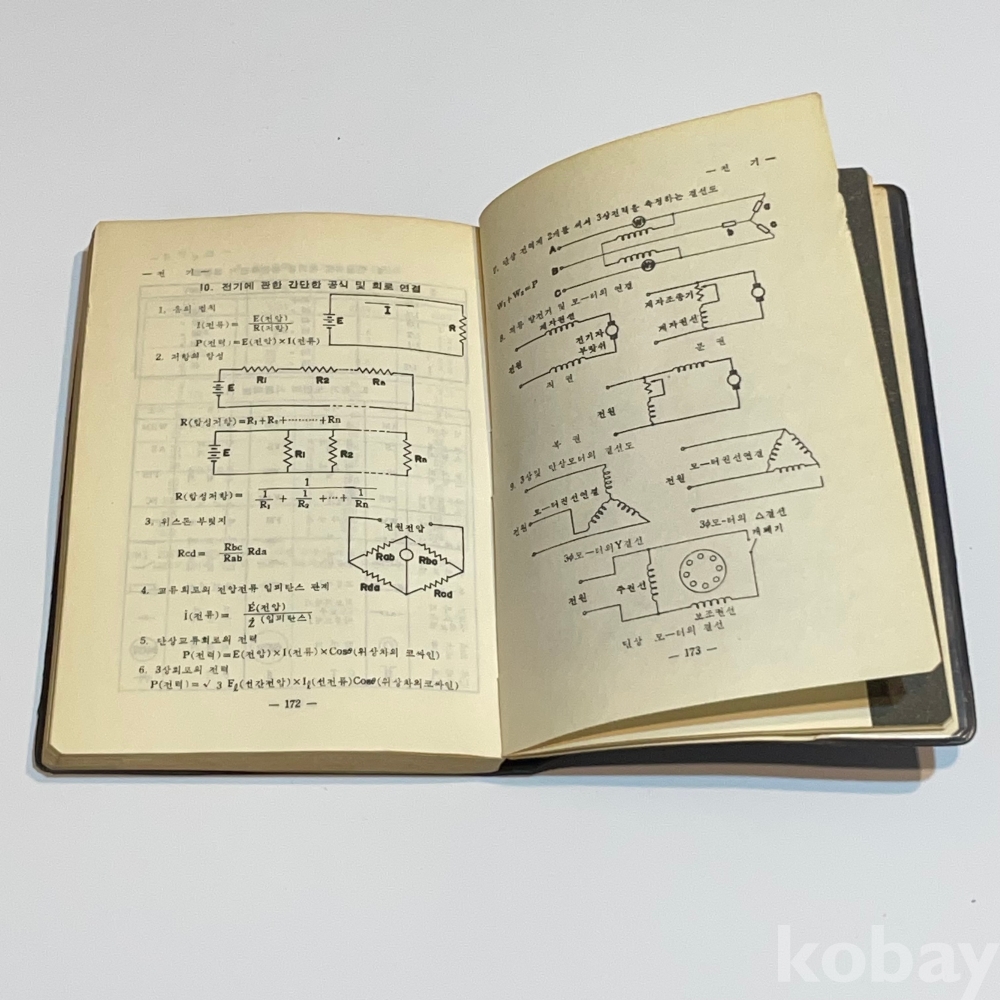 — 전 기 —
10. 전기에 관한 간단한 공식 및 회로 연결
1. 옴의 법칙
I(전류)= E(전압)/R(저항)
P(전력)=E(전압)×I(전류)
E I R
2. 저항의 합성
E R1 R2 Rn
R(합성저항)=R1+R2+………+Rn
E R1 R2 Rn
R(합성저항)= 1/(1/R1 + 1/R2 +…+ 1/Rn)
3. 위스톤 부릿지
Rcd= Rbc/Rab Rda
전원전압
Rab Rbc
Rda Rcd
4. 교류회로의 전압전류 임피단스 관계
İ(전류)= Ė(전압)/Ż(임피탄스)
5. 단상교류회로의 전력
P(전력)=E(전압)×I(전류)×Cosθ(위상차의 코싸인)
6. 3상회로의 전력
P(전력)=√3 Eℓ(선간전압)×Iℓ(선전류)Cosθ(위상차의코싸인)
— 172 —
— 전 기 —
7. 단상 전력계 2개를 써서 3상전력을 측정하는 결선도
A W1 a
B b c
C W2
W1+W2=P
8. 직류 발전기 및 모ー터의 연결
계자권선
전원
전기자
부랏쉬
직 권
계자조종기
계자권선
분 권
전원
복 권
9. 3상및 단상모터의 결선도
모ー터권선연결
전원
3ϕ모ー터의Y결선
모ー터권선연결
전원
3ϕ모ー터의 △결선
개폐기
전원
주권선
보조권선
단상 모ー터의 결선
— 173 —
kobay